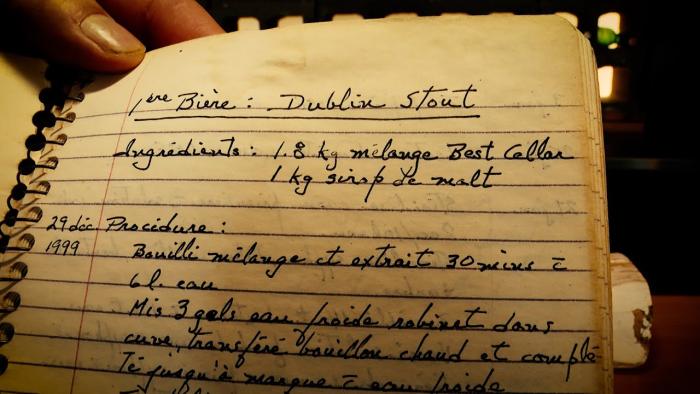 1ère Bière : Dublin Stout
Ingrédients : 1.8 kg mélange Best Cellar
1 kg sirop de malt
29 déc Procédure :
1999 Bouilli mélange et extrait 30 mins c̄
6 l. eau
Mis 3 gals eau froide robinet dans
cuve, transféré bouillon chaud et complé
té jusqu'à marque c̄ eau froide